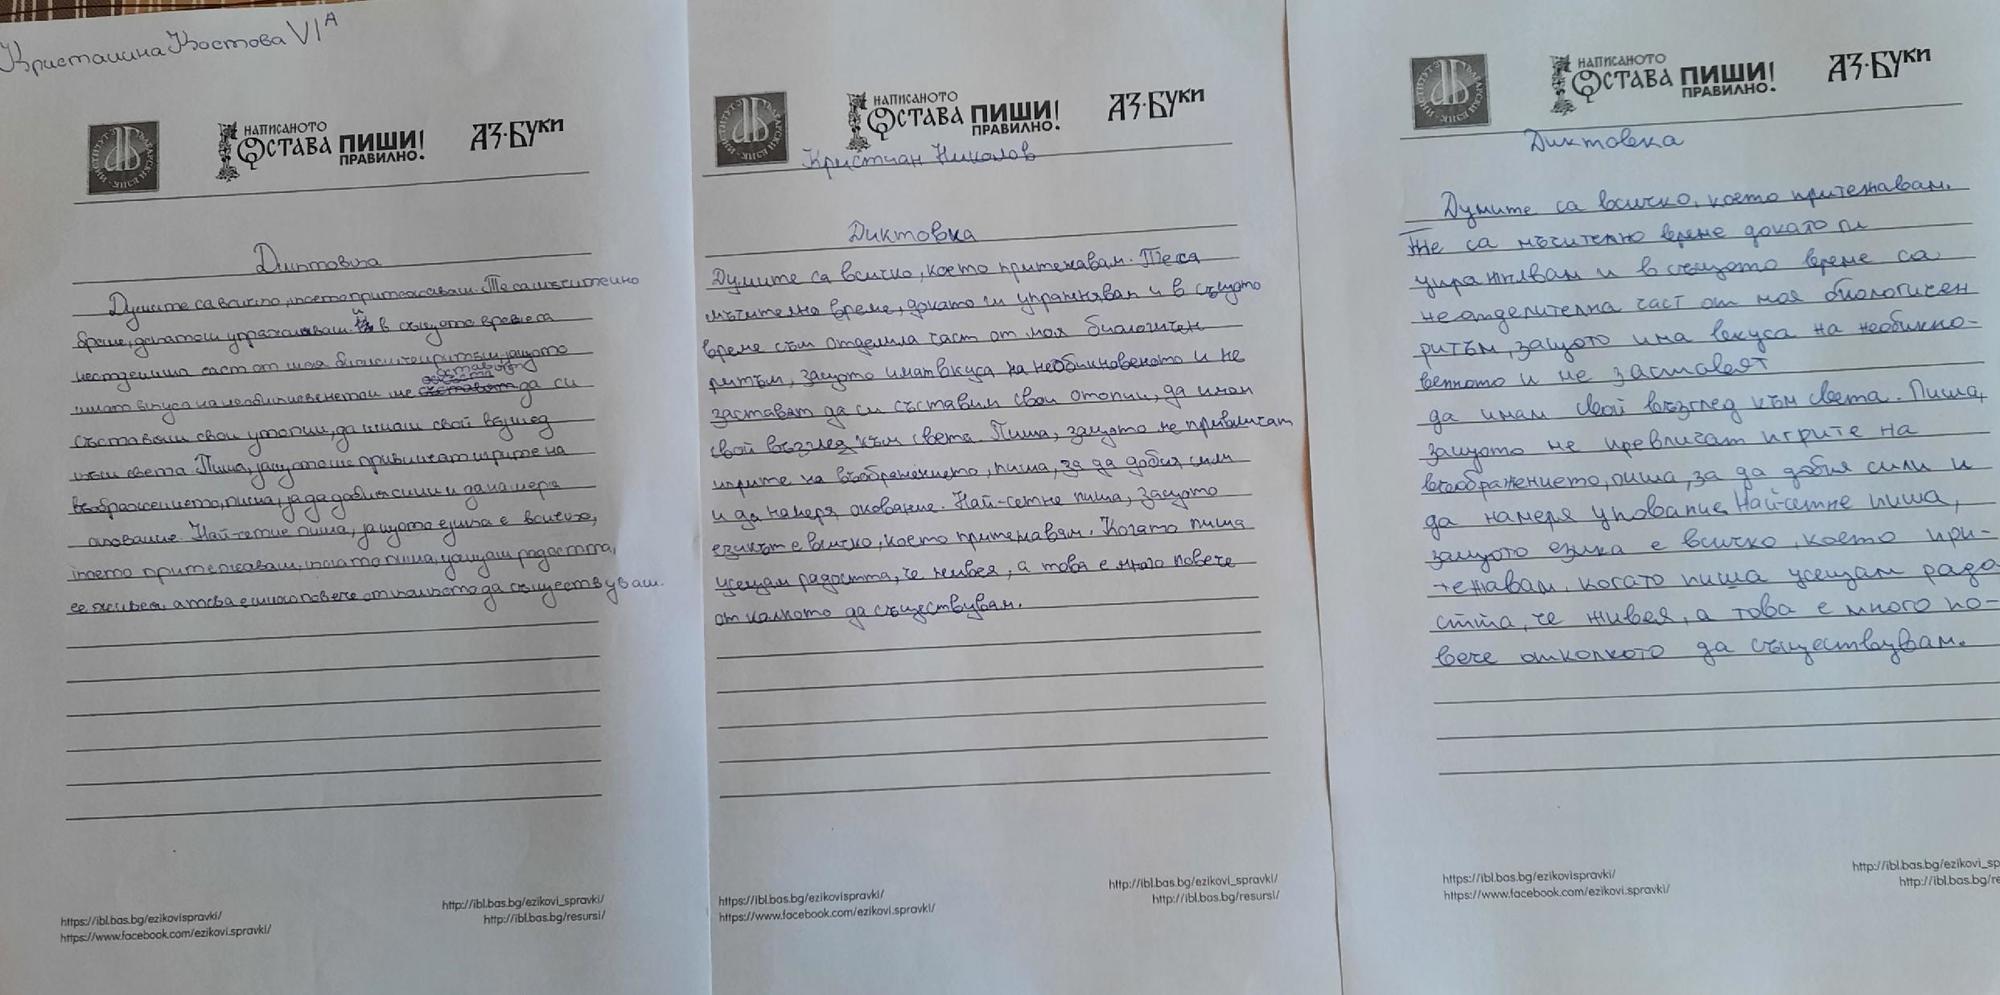 Кристалина Костова VI А
НАПИСАНОТО
ОСТАВА ПИШИ!
ПРАВИЛНО!
АЗ·БУКИ
Диктовка
Думите са всичко, което притежавам. Те са мъчително
време, докато ги упражнявам. и в същото време са
част от моя биологичен ритъм, защото
имат вкуса на необикновеното и ме да си
съставям свои утопии, да имам свой възглед
към света. Пиша, защото ме привличат игрите на
въображението, пиша, за да добия сили и да намеря
опование. Най-сетне пиша, защото езика е всичко,
което притежавам, когато пиша, усещам радостта,
че живея, а това е много повече от колкото да съществувам.
https://ibl.bas.bg/ezikovispravki/
https://www.facebook.com/ezikovi.spravki/
http://ibl.bas.bg/ezikovi_spravki/
http://ibl.bas.bg/resursi/
НАПИСАНОТО
ОСТАВА ПИШИ!
ПРАВИЛНО!
АЗ·БУКИ
Кристиан Николов
Диктовка
Думите са всичко, което притежавам. Те са
мъчително време, докато ги упражнявам и в същото
време съм отделила част от моя биологичен
ритъм, защото имат вкуса на необикновеното и ме
заставят да си съставим свои отопии, да имам
свой възглед към света. Пиша, защото ме привличат
игрите на въображението, пиша, за да добия сили
и да намеря опование. Най-сетне пиша, защото
езикът е всичко, което притежавям. Когато пиша
усещам радостта, че живея, а това е много повече
от колкото да съществувам.
https://ibl.bas.bg/ezikovispravki/
https://www.facebook.com/ezikovi.spravki/
http://ibl.bas.bg/ezikovi_spravki/
http://ibl.bas.bg/resursi/
НАПИСАНОТО
ОСТАВА ПИШИ!
ПРАВИЛНО!
АЗ·БУКИ
Диктовка
Думите са всичко, което притежавам.
Те са мъчително време докато ги
упражнявам и в същото време са
неотделителна част от моя биологичен
ритъм, защото има вкуса на необикно-
веното и ме заставят
да имам свой възглед към света. Пиша,
защото ме превличат игрите на
въображението, пиша, за да добия сили и
да намеря упование. Най-сетне пиша,
защото езика е всичко, което при-
тежавам. когато пиша усещам радо-
стта, че живея, а това е много по-
вече отколкото да съществувам.
https://ibl.bas.bg/ezikovispravki/
https://www.facebook.com/ezikovi.spravki/
http://ibl.bas.bg/ezikovi_sp
http://ibl.bas.bg/re